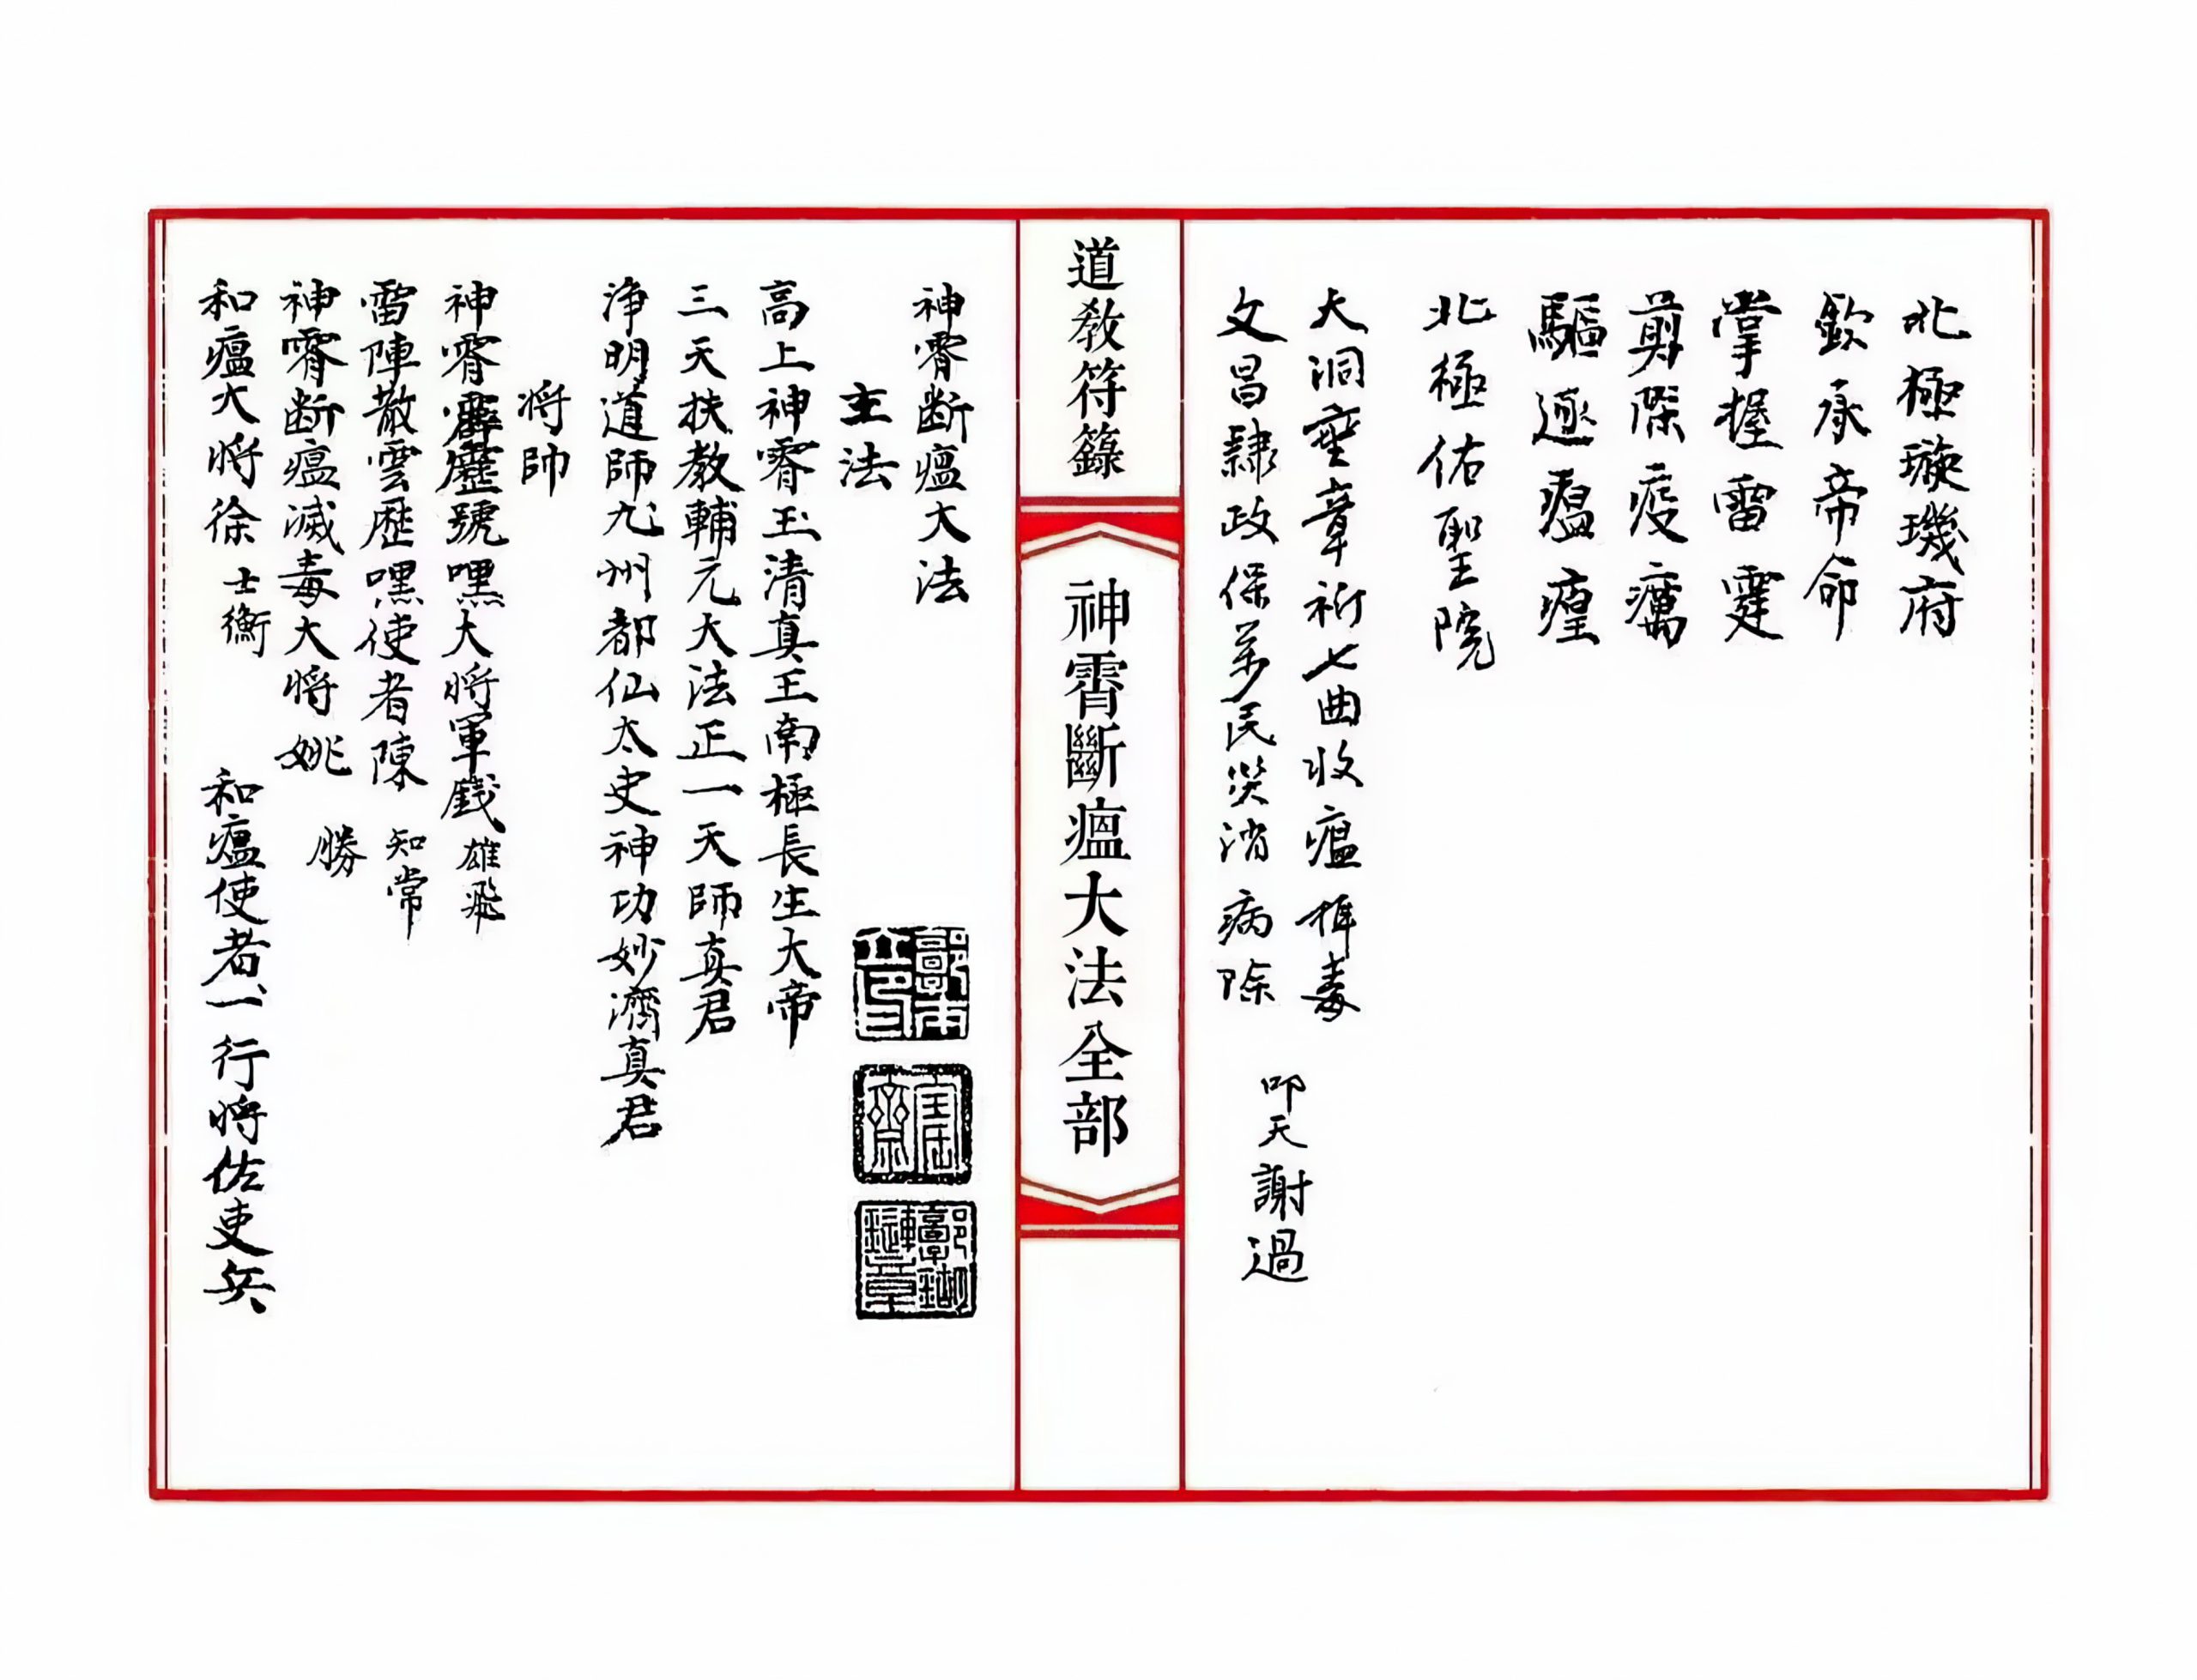 北極璇璣府
欽承帝命
掌握雷霆
剪除疫癘
驅逐瘟瘴
北極佑聖院
大洞章祈七曲收瘟攝毒
文昌隷政保萬民災消病除
叩天謝過
道教符籙
神霄斷瘟大法全部
神霄断瘟大法
主法
高上神霄玉清真王南極長生大帝
三天扶教輔元大法正一天師真君
淨明道師九州都仙太史神功妙濟真君
将帥
神霄霹靂號嘿大将軍戲雄飛
雷陣散雲歷嘿使者陳知常
神霄断瘟滅毒大将姚勝
和瘟大将徐士衡
和瘟使者一行将佐吏兵